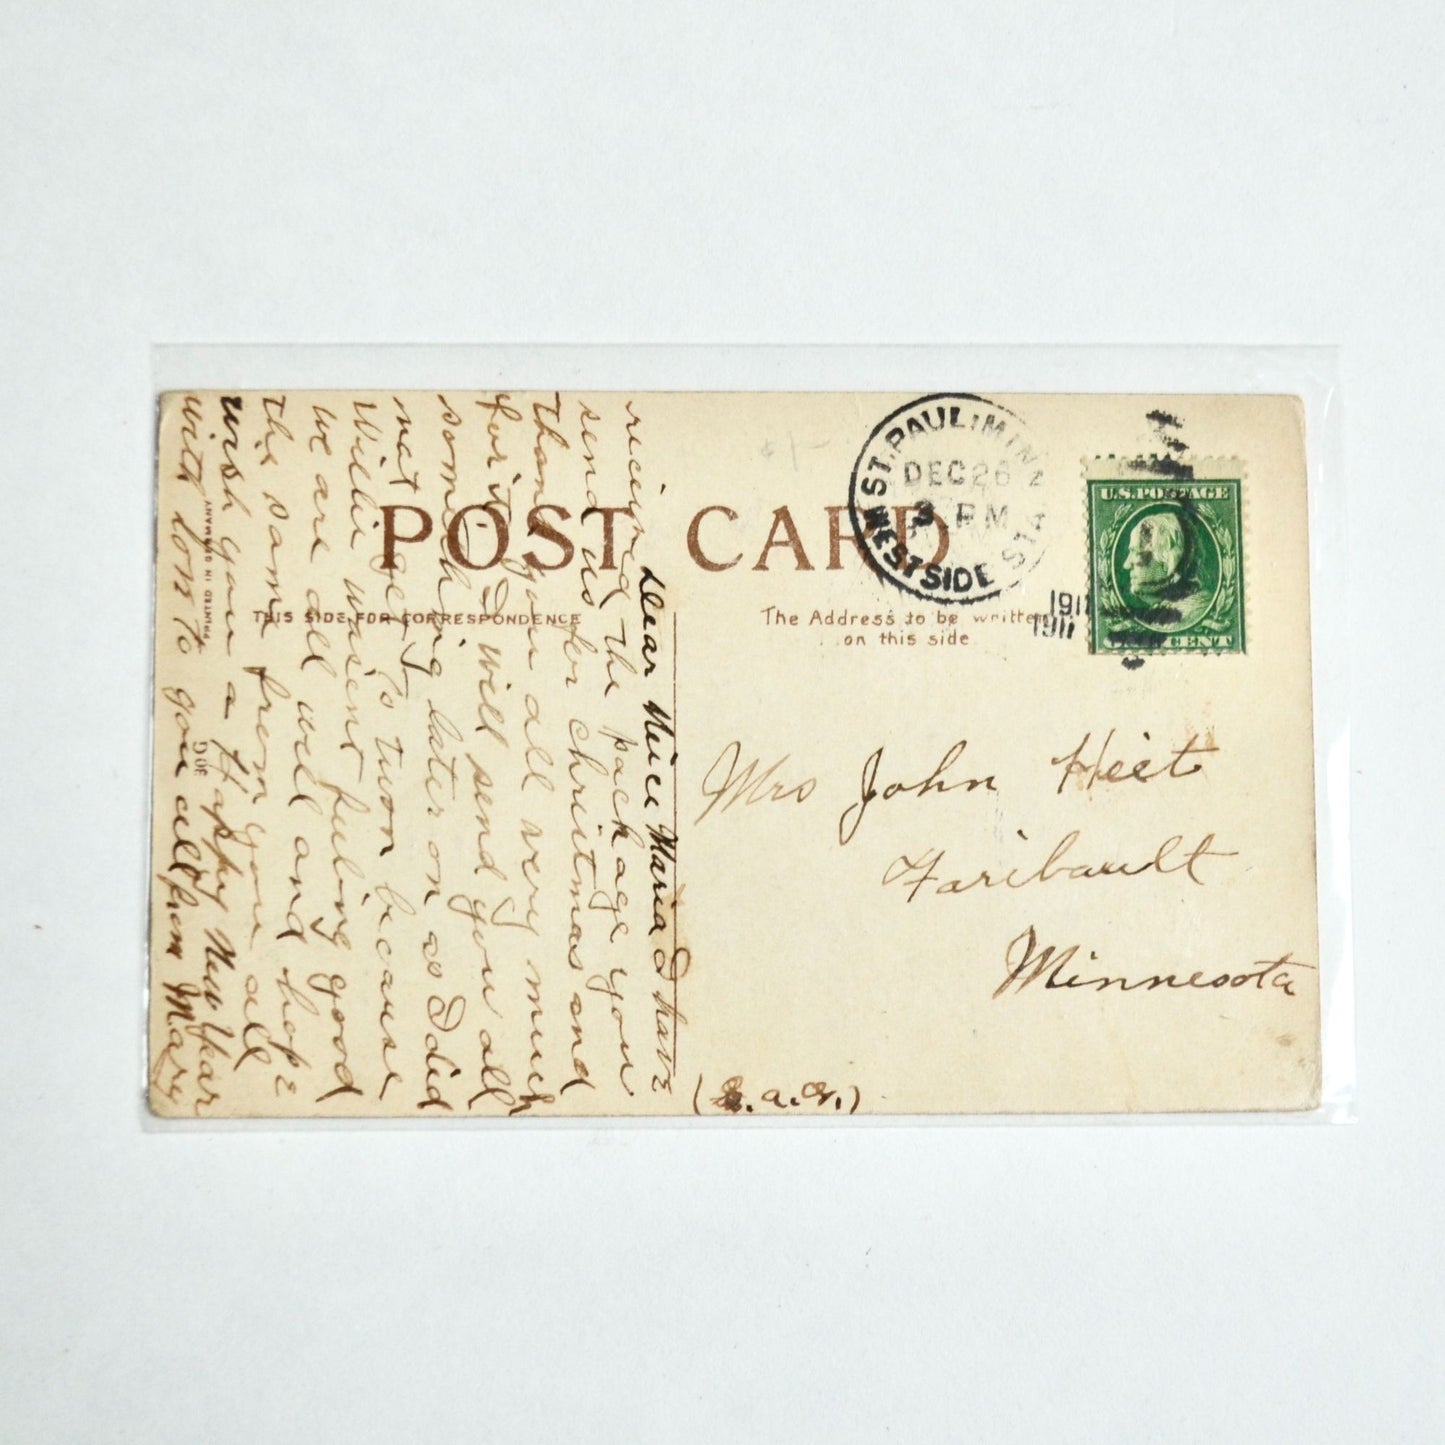 POST CARD
THIS SIDE FOR CORRESPONDENCE
The Address to be written
on this side
ST. PAUL, MINN.
DEC 26
3 PM
WEST SIDE STA
1911
1911
U.S. POSTAGE
CENT
Mrs John Heit
Faribault
Minnesota
Dear Niece Maria I have
recieved the package you
send us for christmas and
Thank you all very much
for it I will send you all
something later on as I did
not get to town because
Willie wasent feeling good
we are all well and hope
the same from you all
wish you a Happy New Year
with to you all from Mary
PRINTED IN GERMANY